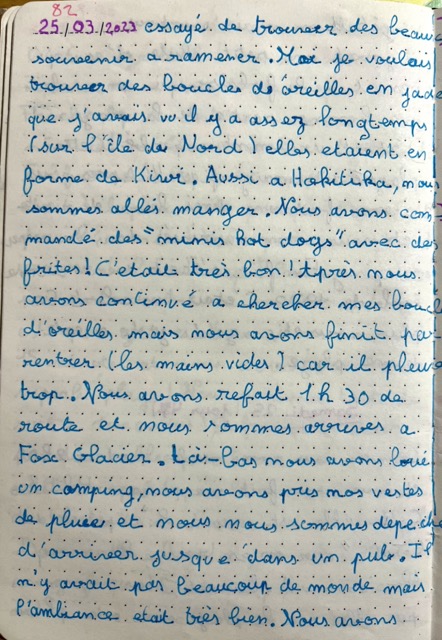 82
25./03./2023 essayé de trouver des beaux
souvenir a ramener. Moi je voulais
trouver des boucles de oreilles en jade
que j'avais vu il y a assez longtemps
(sur l'île du Nord) elles etaient en
forme de Kiwi. Aussi a Hokitika, nou
sommes allés manger. Nous avons com
mandé des "minis hot dogs" avec des
frites! C'etait très bon! Après nous
avons continué a chercher mes boucl
d'oreilles mais nous avons finit par
rentrer (les mains vides) car il pleuv
trop. Nous avons refait 1h30 de
route et nous sommes arrives a
Fox Glacier. Là-bas nous avons loué
un camping, nous avons pris nos vestes
de pluie et nous nous sommes depeche
d'arriver jusque dans un pub. Il
n'y avait pas beaucoup de monde mais
l'ambiance etait très bien. Nous avons